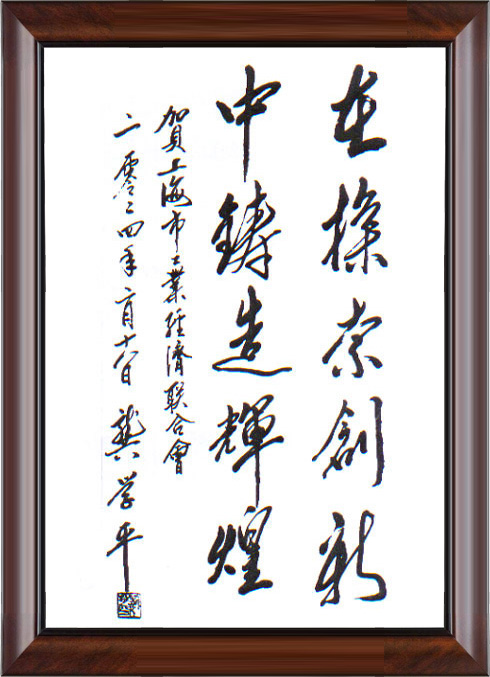 在探索創新
中鑄造輝煌
賀上海市工業經濟联合會
二零々四年二月十八日 龔学平